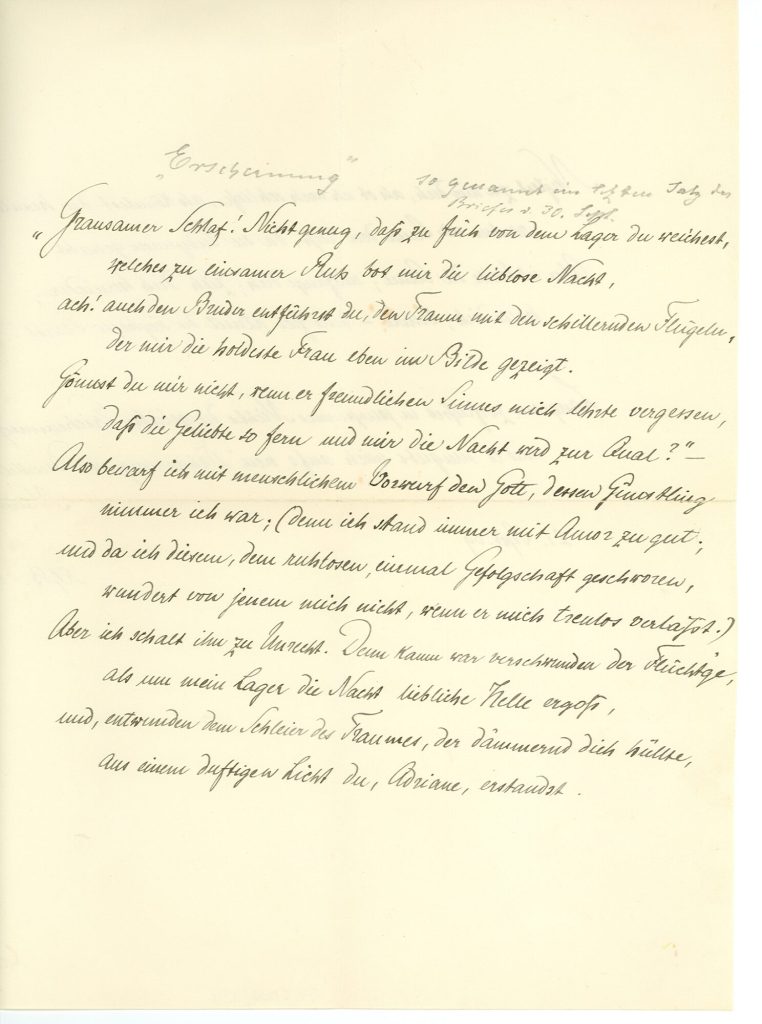 „Erscheinung"
so genannt im letzten Satz des
Briefes v. 30. Sept.
„Grausamer Schlaf! Nicht genug, daß zu früh von dem Lager du weichest,
welches zu einsamer Ruh bot mir die lieblose Nacht,
ach! auch den Bruder entführst du, den Traum mit den schillernden Flügeln,
der mir die holdeste Frau eben im Bilde gezeigt.
Gönnst du mir nicht, wenn er freundlichen Sinnes mich lehrte vergessen,
daß die Geliebte so fern und mir die Nacht wird zur Qual?" –
Also bewarf ich mit menschlichem Vorwurf den Gott, dessen Günstling
nimmer ich war; (denn ich stand immer mit Amor zu gut;
und da ich diesem, dem ruhlosen, einmal Gefolgschaft geschworen,
wundert von jenem mich nicht, wenn er mich treulos verläßt.)
Aber ich schalt ihn zu Unrecht. Denn kaum war verschwunden der Flücht'ge,
als um mein Lager die Nacht liebliche Helle ergoß,
und, entwunden dem Schleier des Traumes, der dämmernd dich hüllte,
aus einem duftigen Licht du, Adriane, erstandst.